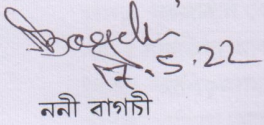 SBagchi
17.5.22
ননী বাগচী